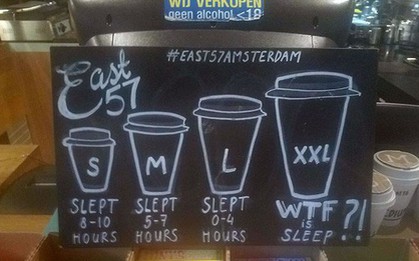 WIJ VERKOPEN
geen alcohol <18
#EAST57AMSTERDAM
East
57
S
M
L
XXL
SLEPT
8-10
HOURS
SLEPT
5-7
HOURS
SLEPT
0-4
HOURS
WTF?!
is
SLEEP